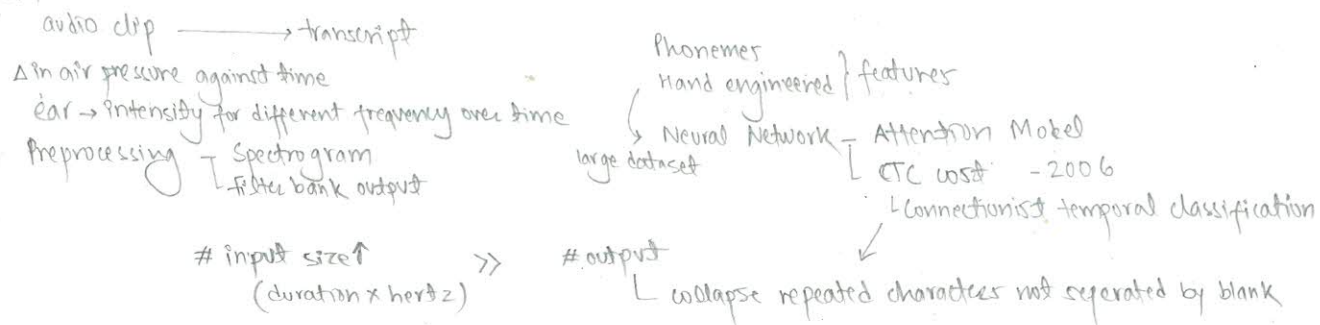 audio clip → transcript
Δ in air pressure against time
ear → intensity for different frequency over time
Preprocessing - Spectrogram
Filter bank output
Phonemes
Hand engineered } features
Neural Network - Attention Mokel
large dataset
CTC cost - 2006
Connectionist temporal classification
# input size↑ >> # output
(duration x hertz)
collapse repeated characters not seperated by blank